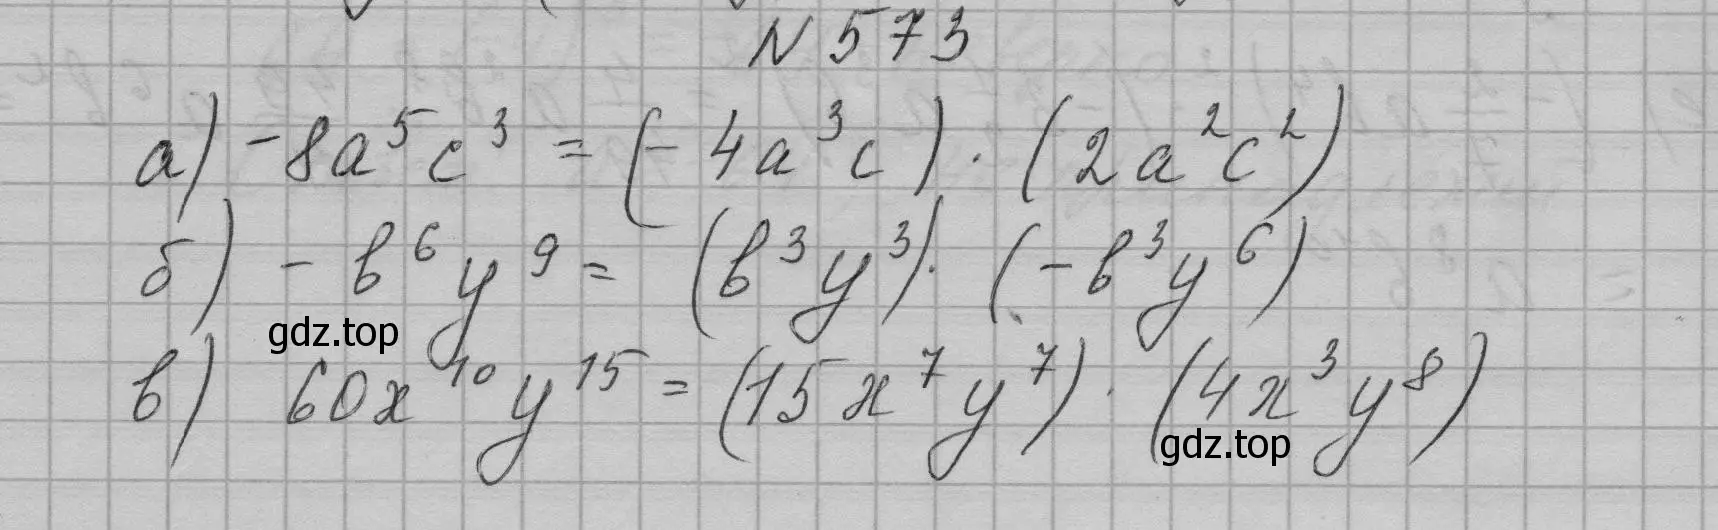 N 573
а) -8a⁵c³ = (-4a³c) · (2a²c²)
б) -b⁶y⁹ = (b³y³) · (-b³y⁶)
gdz.top
в) 60x¹⁰y¹⁵ = (15x⁷y⁷) · (4x³y⁸)
gdz.top